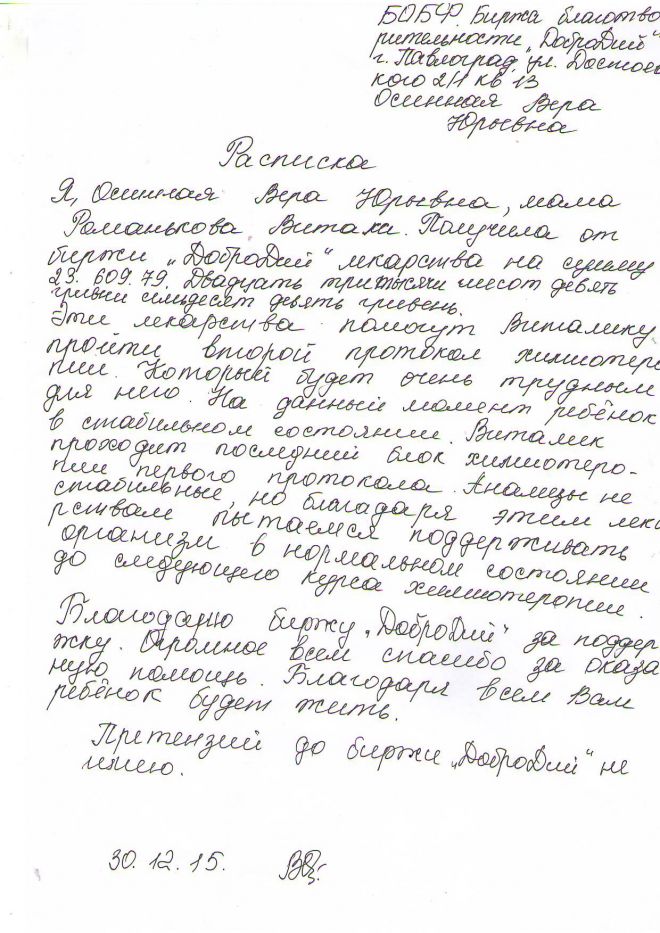 БОБФ. Биржа благотво
рительности „ДоброДий"
г. Павлоград, ул. Достоев
кого 2/1 кв 13
Осинная Вера
Юрьевна
Расписка
Я, Осинная Вера Юрьевна, мама
Романькова Витали. Получила от
биржи „ДоброДий" лекарства на сумму
23. 609. 79. Двадцать тритысячи шесот девять
гривни симдесят девять гривень.
Эти лекарства помогут Виталику
пройти второй протокол химиотеро
пии. Который будет очень трудным
для него. На данный момент ребёнок
в стабильном состоянии. Виталик
проходит последний блок химиотеро-
пии первого протокола. Анализы не
стабильные, но благодаря этим лека
рствам пытаемся поддерживать
организм в нормальном состоянии
до следующего курса химиотеропии.
Благодарю биржу „ДоброДий" за поддер
жку. Огромное всем спасибо за оказа
ную помощь. Благодаря всем Вам
ребёнок будет жить.
Претензий до биржи „ДоброДий" не
имею.
30. 12. 15.